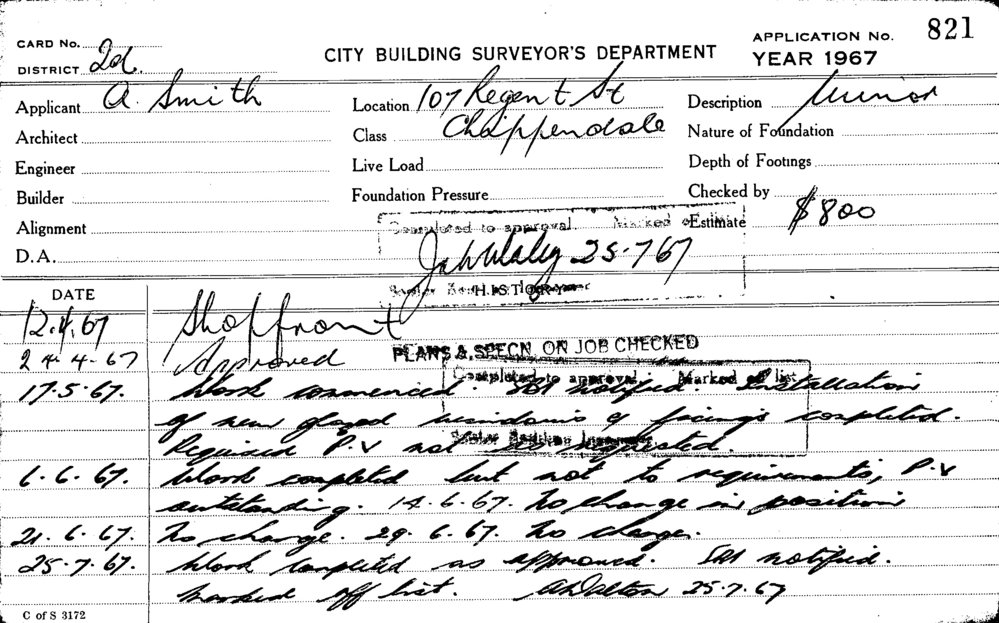 CARD No. 2d. CITY BUILDING SURVEYOR'S DEPARTMENT APPLICATION No. 821
DISTRICT YEAR 1967
Applicant A. Smith Location 107 Regent St Description Minor
Architect Class Chippendale Nature of Foundation
Engineer Live Load Depth of Footings
Builder Foundation Pressure Checked by
Alignment Completed to approval. Marked Estimate $800
D.A. 25.7.67
HISTORY
DATE
12.4.67 Shopfront
24.4.67 Approved PLANS & SPECN. ON JOB CHECKED
Completed to approval. Marked off list
17.5.67. Work commenced SBI notified. Installation
of new glazed windows & facings completed.
Required P.V not
Senior Building Inspector
6.6.67. Work completed but not to requirements, P.V
outstanding. 14.6.67. No change in position
21.6.67. No change. 29.6.67. No change.
25.7.67. Work completed as approved. SBI notified.
Marked off list. 25.7.67
C of S 3172